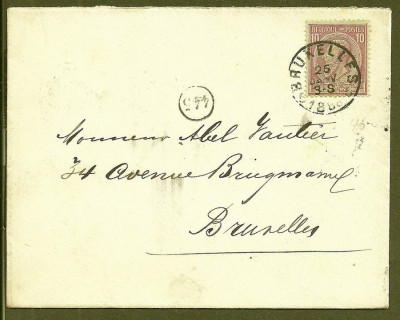 BELGIQUE POSTES
10 10
BRUXELLES
25
3-S
445
Monsieur Abel Vautier
34 Avenue Brugmann
Bruxelles